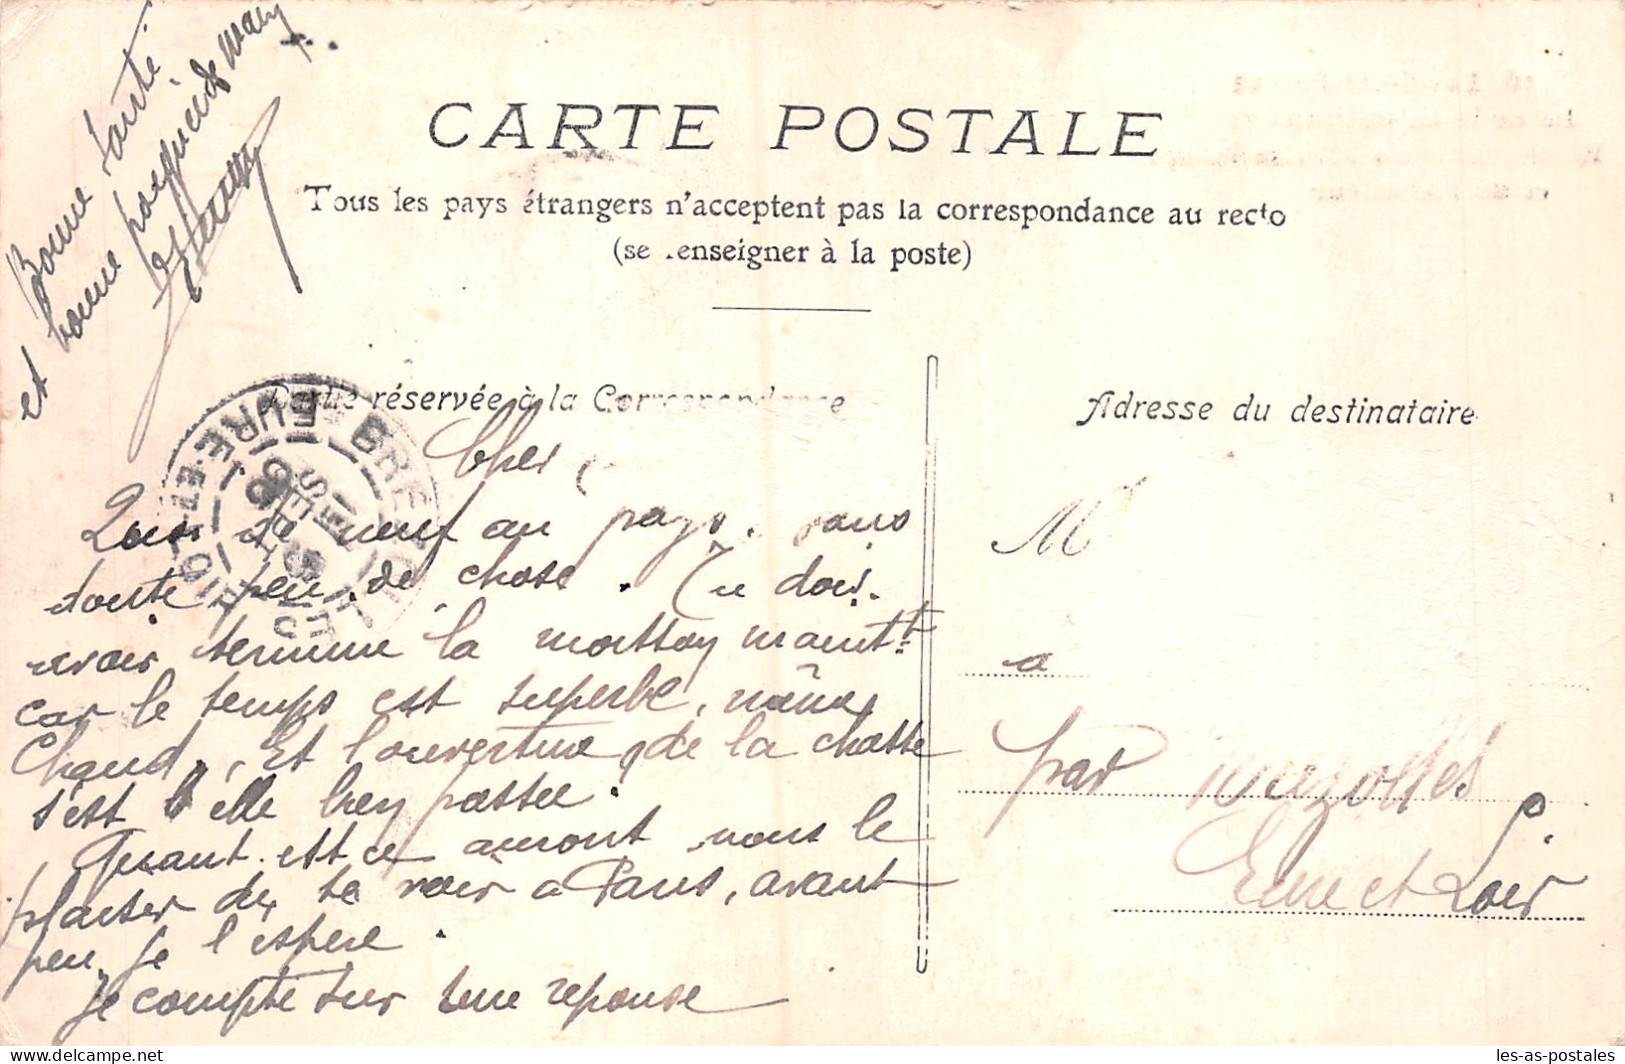 Bonne santé
et bonne poignée de main
CARTE POSTALE
Tous les pays étrangers n'acceptent pas la correspondance au recto
(se renseigner à la poste)
Partie réservée à la Correspondance
Adresse du destinataire
BREZOLLES
EURE ET LOIR
SEPT
Cher
Quoi de neuf au pays. sans
doute peu de chose. Tu dois
avoir terminé la moisson maintt
car le temps est superbe, même
Chaud. Et l'ouverture de la chasse
s'est t'elle bien passée?
Quant est ce auront nous le
plaisir de te voir a Paris, avant
peu, je l'espère.
Je compte sur une reponse
M
a
par Brezolles
Eure et Loir
les-as-postales
les-as-postales.com